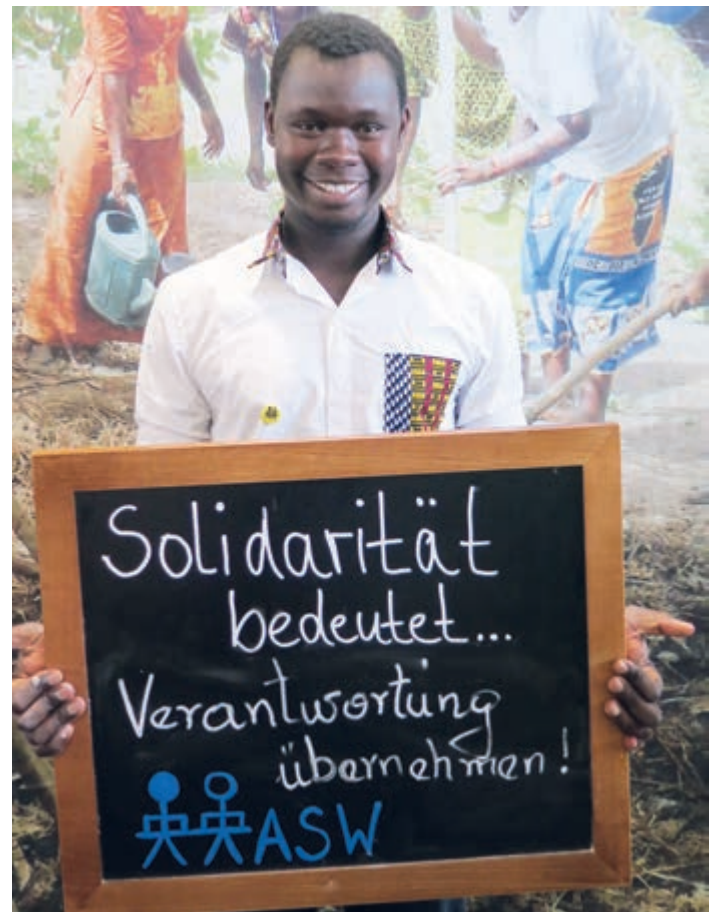 Solidarität
bedeutet...
Verantwortung
übernehmen!
ASW